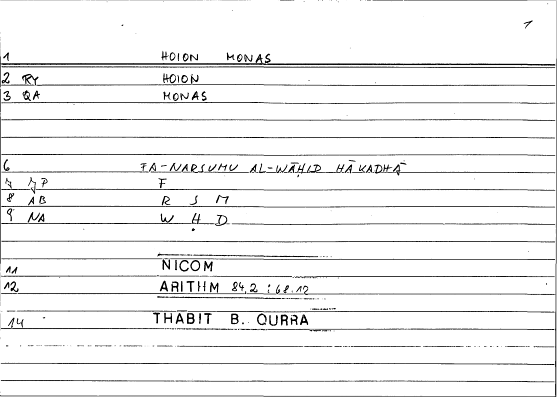 1
1 HOION MONAS
2 RY HOION
3 QA MONAS
6 FA-NARSUMU AL-WĀḤID HĀKADHĀ
F
8 AB R S M
9 NA W Ḥ D
11 NICOM
12 ARITHM 84,2 ; 68.12
14 THABIT B. QURRA